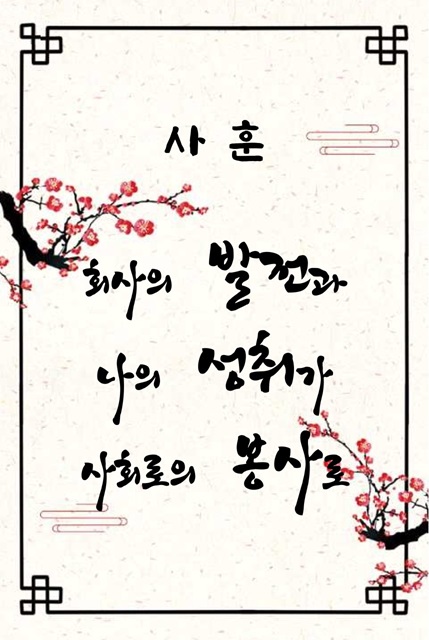 사 훈
회사의 발전과
나의 성취가
사회로의 봉사로